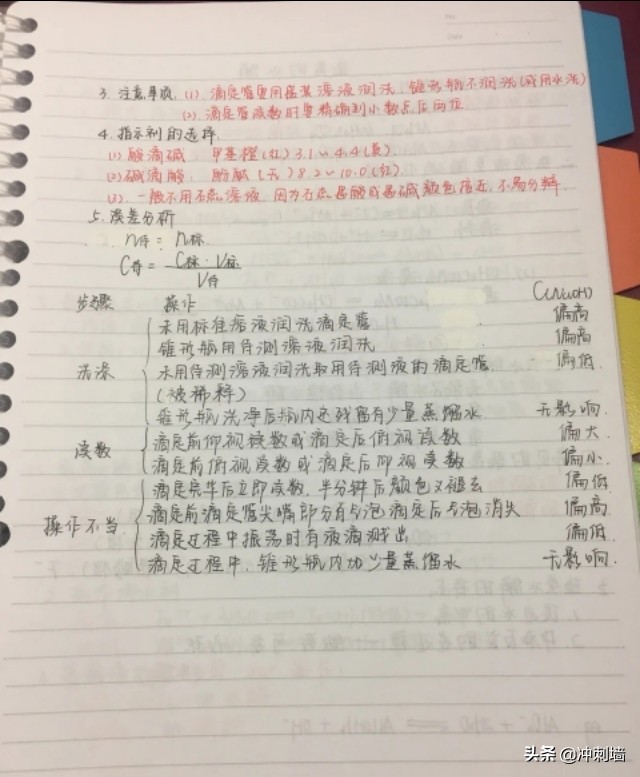 3. 注意事项: (1). 滴定管要用盛装溶液润洗, 锥形瓶不润洗(或用水洗)
(2). 滴定管读数时要精确到小数点后两位
4. 指示剂的选择.
(1) 酸滴碱: 甲基橙(红) 3.1~4.4(黄).
(2) 碱滴酸: 酚酞(无) 8.2~10.0(红).
(3). 一般不用石蕊溶液, 因为石蕊遇酸或遇碱颜色接近, 不易分辨.
5. 误差分析
n待 = n标.
C待 = C标·V标 / V待
步骤 操作 C(NaOH)
未用标准溶液润洗滴定管 偏高
锥形瓶用待测溶液润洗 偏高
洗涤 未用待测溶液润洗取用待测液的滴定管. 偏低
(被稀释)
锥形瓶洗净后瓶内还残留有少量蒸馏水 无影响.
读数 滴定前仰视读数或滴定后俯视读数 偏大
滴定前俯视读数或滴定后仰视读数 偏小.
滴定完毕后立即读数, 半分钟后颜色又褪去 偏低
操作不当 滴定前滴定管尖嘴部分有气泡滴定后气泡消失 偏高
滴定过程中振荡时有液滴溅出 偏低
滴定过程中, 锥形瓶内加少量蒸馏水 无影响.
头条 @冲刺墙